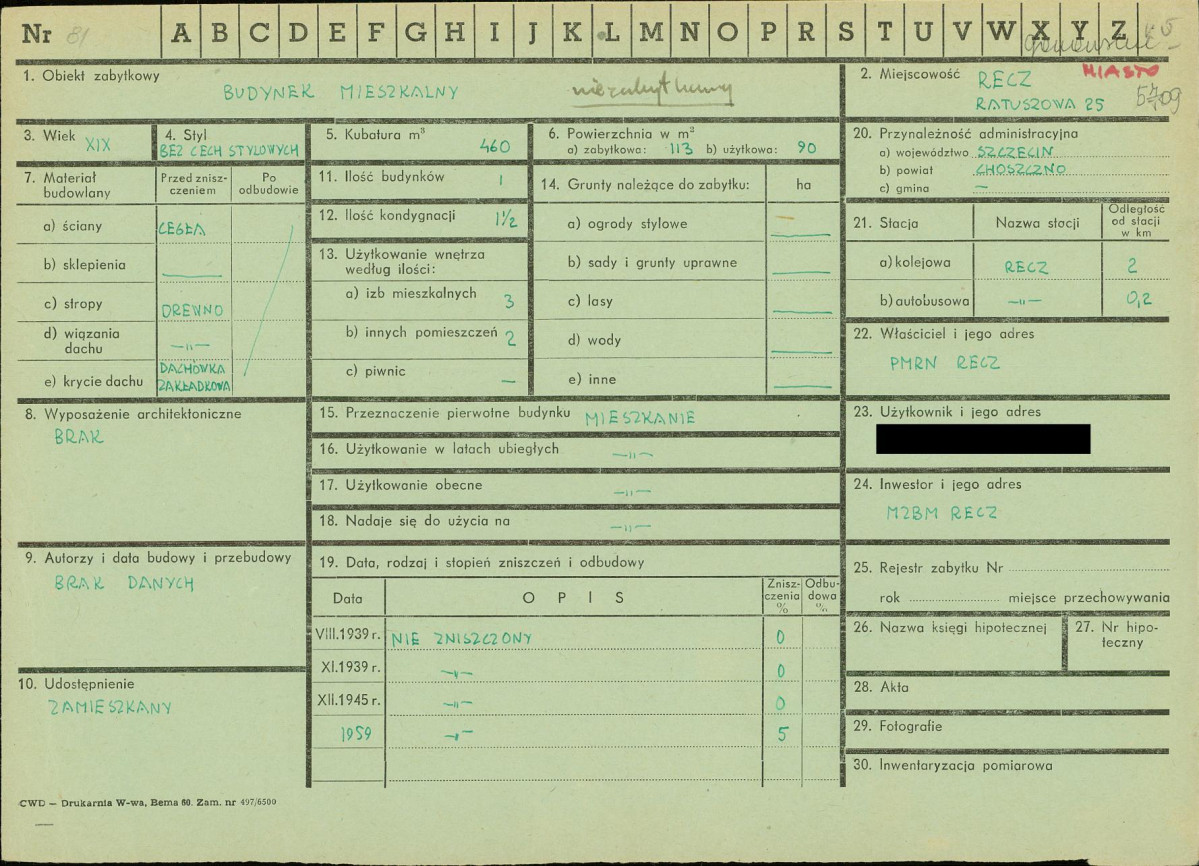 Nr 81 A B C D E F G H I J K L M N O P R S T U V W X Y Z
1. Obiekt zabytkowy
BUDYNEK MIESZKALNY niezabytkowy
2. Miejscowość RECZ MIASTO
RATUSZOWA 25 5709
3. Wiek XIX
4. Styl
BEZ CECH STYLOWYCH
5. Kubatura m³ 460
6. Powierzchnia w m²
a) zabytkowa: 113 b) użytkowa: 90
7. Materiał budowlany
Przed znisz-
czeniem
Po
odbudowie
a) ściany CEGŁA
b) sklepienia —
c) stropy DREWNO
d) wiązania
dachu -"-
e) krycie dachu DACHÓWKA
ZAKŁADKOWA
8. Wyposażenie architektoniczne
BRAK
9. Autorzy i data budowy i przebudowy
BRAK DANYCH
10. Udostępnienie
ZAMIESZKANY
11. Ilość budynków 1
12. Ilość kondygnacji 1½
13. Użytkowanie wnętrza
według ilości:
a) izb mieszkalnych 3
b) innych pomieszczeń 2
c) piwnic —
14. Grunty należące do zabytku: ha
a) ogrody stylowe —
b) sady i grunty uprawne —
c) lasy —
d) wody —
e) inne —
15. Przeznaczenie pierwotne budynku MIESZKANIE
16. Użytkowanie w latach ubiegłych -"-
17. Użytkowanie obecne -"-
18. Nadaje się do użycia na -"-
19. Data, rodzaj i stopień zniszczeń i odbudowy
Data OPIS Znisz-
czenia
% Odbu-
dowa
%
VIII.1939 r. NIE ZNISZCZONY 0
XI.1939 r. -"- 0
XII.1945 r. -"- 0
1959 -"- 5
20. Przynależność administracyjna
a) województwo SZCZECIN
b) powiat CHOSZCZNO
c) gmina —
21. Stacja Nazwa stacji Odległość
od stacji
w km
a) kolejowa RECZ 2
b) autobusowa -"- 0,2
22. Właściciel i jego adres
PMRN RECZ
23. Użytkownik i jego adres
24. Inwestor i jego adres
MZBM RECZ
25. Rejestr zabytku Nr
rok miejsce przechowywania
26. Nazwa księgi hipotecznej
27. Nr hipo-
teczny
28. Akta
29. Fotografie
30. Inwentaryzacja pomiarowa
CWD — Drukarnia W-wa, Bema 60. Zam. nr 497/6500